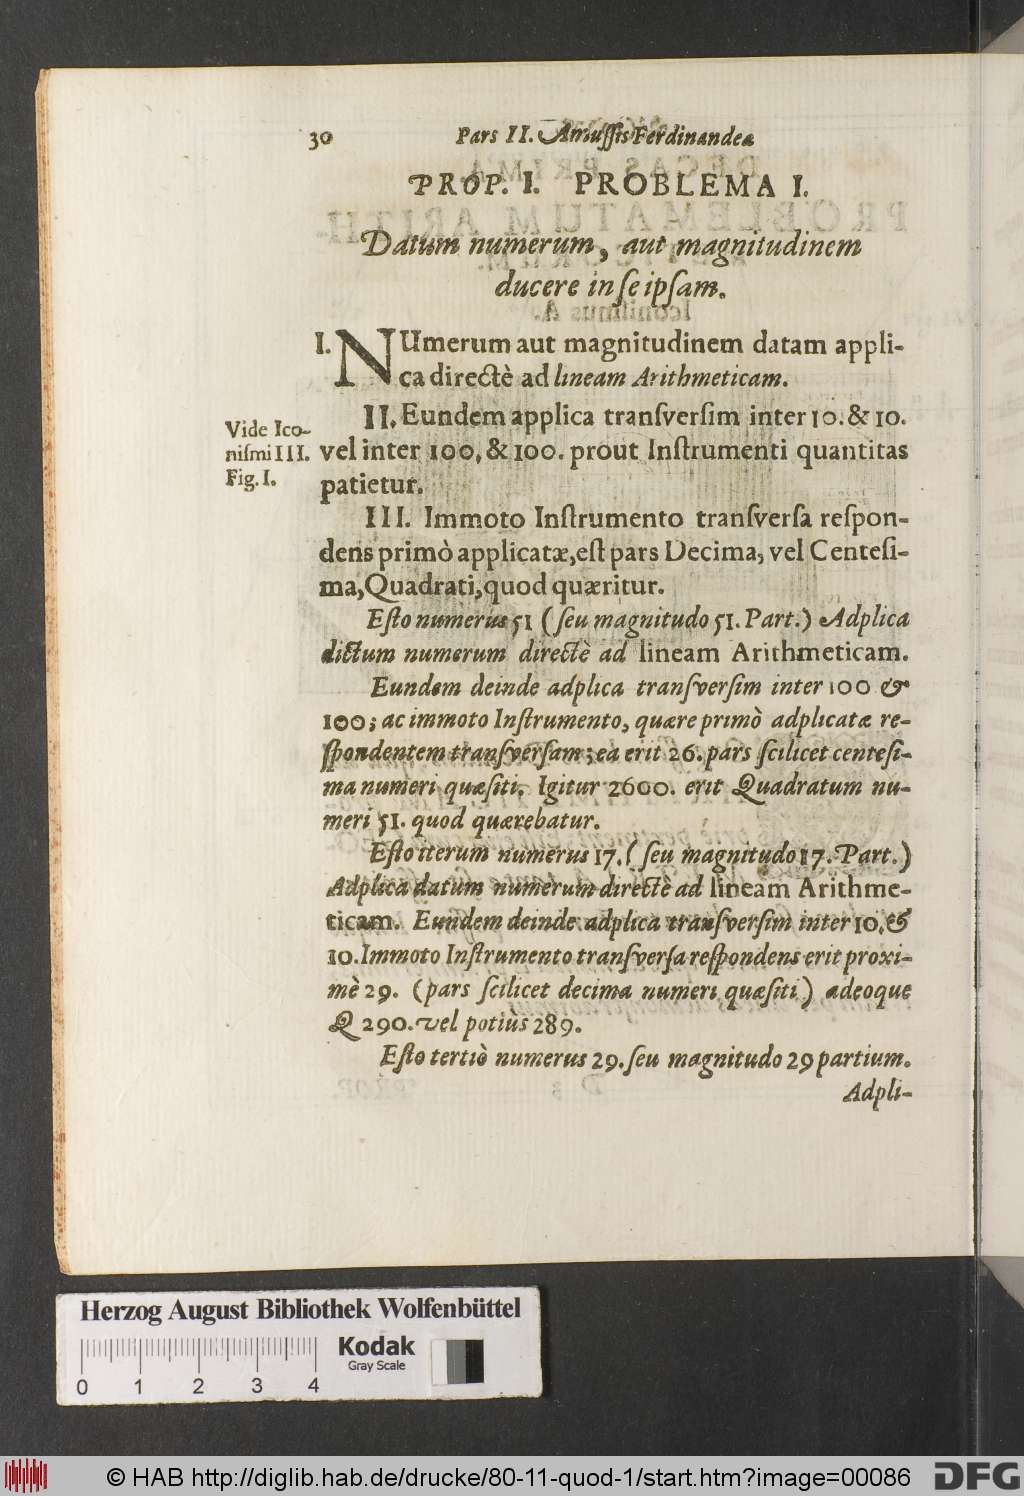 30 Pars II. Amuſſis Ferdinandeæ
PROP. I. PROBLEMA I.
Datum numerum, aut magnitudinem
ducere in ſe ipſam.
I. NUmerum aut magnitudinem datam appli-
ca directè ad lineam Arithmeticam.
II. Eundem applica tranſverſim inter 10. & 10.
Vide Ico-
niſmi III.
Fig. I.
vel inter 100, & 100. prout Inſtrumenti quantitas
patietur.
III. Immoto Inſtrumento tranſverſa reſpon-
dens primò applicatæ, eſt pars Decima, vel Centeſi-
ma, Quadrati, quod quæritur.
Eſto numerus 51 (ſeu magnitudo 51. Part.) Adplica
dictum numerum directè ad lineam Arithmeticam.
Eundem deinde adplica tranſverſim inter 100 &
100; ac immoto Inſtrumento, quære primò adplicatæ re-
ſpondentem tranſverſam; ea erit 26. pars ſcilicet centeſi-
ma numeri quæſiti. Igitur 2600. erit Quadratum nu-
meri 51. quod quærebatur.
Eſto iterum numerus 17. (ſeu magnitudo 17. Part.)
Adplica datum numerum directè ad lineam Arithme-
ticam. Eundem deinde adplica tranſverſim inter 10. &
10. Immoto Inſtrumento tranſverſa reſpondens erit proxi-
mè 29. (pars ſcilicet decima numeri quæſiti) adeoque
Q 290. vel potiùs 289.
Eſto tertiò numerus 29. ſeu magnitudo 29 partium.
Adpli-
Herzog August Bibliothek Wolfenbüttel
Kodak
Gray Scale
0 1 2 3 4
© HAB http://diglib.hab.de/drucke/80-11-quod-1/start.htm?image=00086
DFG